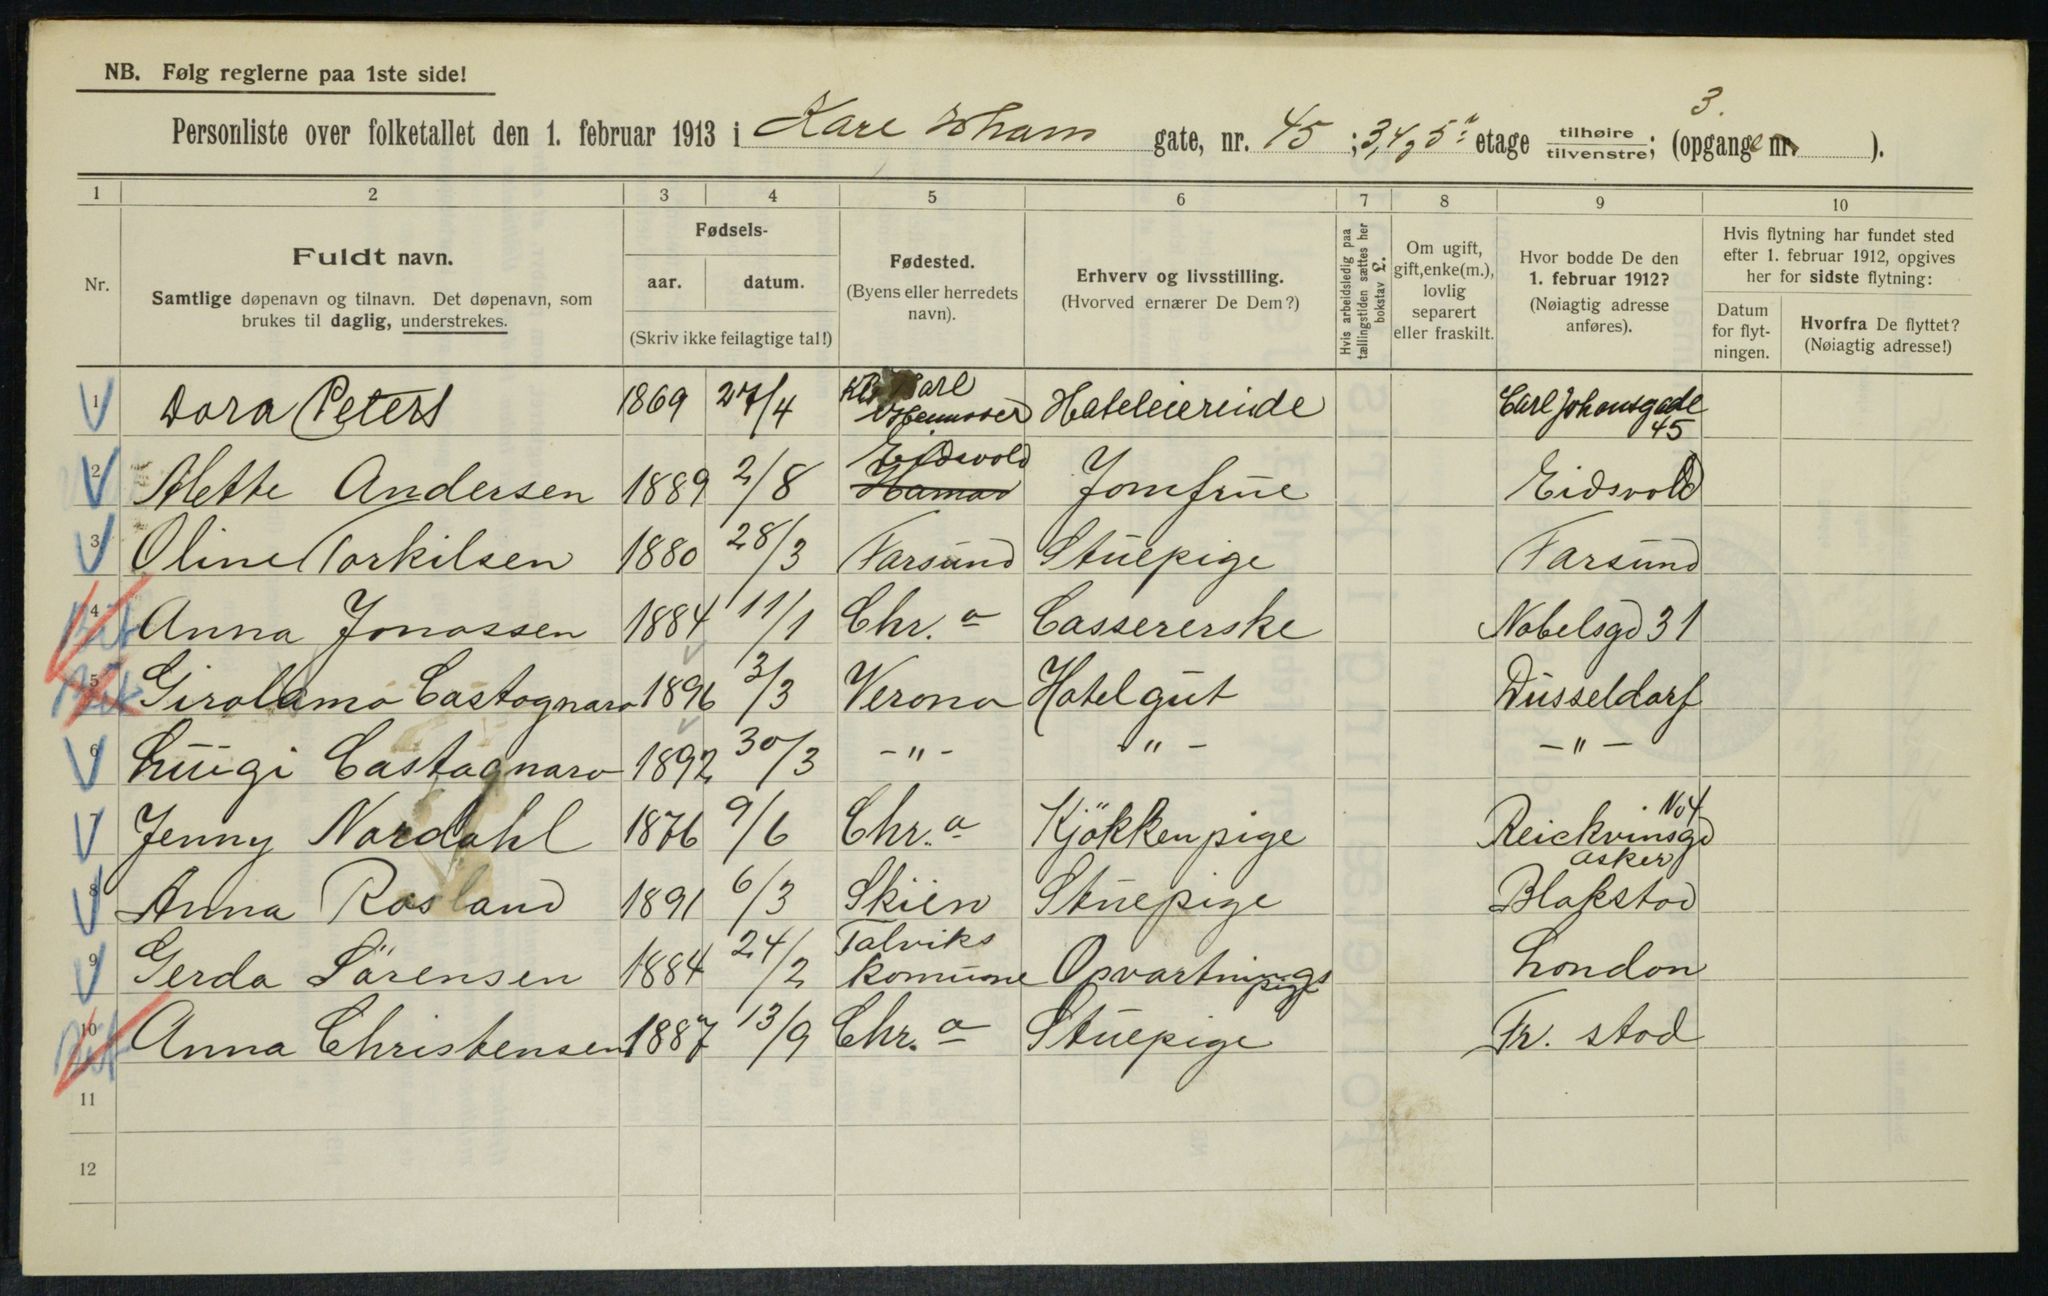 NB. Følg reglerne paa 1ste side!
3.
Personliste over folketallet den 1. februar 1913 i Karl Johans gate, nr. 45 ; 3, 4 og 5 etage tilhøire tilvenstre; (opgange nr. ).
1 2 3 4 5 6 7 8 9 10
Nr.
Fuldt navn.
Samtlige døpenavn og tilnavn. Det døpenavn, som
brukes til daglig, understrekes.
Fødsels-
aar. datum.
(Skriv ikke feilagtige tal!)
Fødested.
(Byens eller herredets
navn).
Erhverv og livsstilling.
(Hvorved ernærer De Dem?)
Hvis arbeidsledig paa
tællingstiden sættes her
bokstav L.
Om ugift,
gift, enke(m.),
lovlig
separert
eller fraskilt.
Hvor bodde De den
1. februar 1912?
(Nøiagtig adresse
anføres).
Hvis flytning har fundet sted
efter 1. februar 1912, opgives
her for sidste flytning:
Datum
for flyt-
ningen.
Hvorfra De flyttet?
(Nøiagtig adresse!)
1 Dora Peters 1869 27/4 Hannover Hoteleierinde Carl Johansgade 45
2 Alette Andersen 1889 2/8 Hamar Eidsvold Jomfrue Eidsvold
3 Oline Torkilsen 1880 28/3 Farsund Stuepige Farsund
4 Anna Jonassen 1884 11/1 Chr.a Cassererske Nobelsgd 31
5 Girolamo Castagnaro 1896 3/3 Verona Hotelgut Düsseldorf
6 Luigi Castagnaro 1892 30/3 - " - - " - - " -
7 Jenny Nordahl 1876 9/6 Chr.a Kjökkenpige Reickvinsgd No 4
8 Anna Rosland 1891 6/3 Skien Stuepige Asker Blakstad
9 Gerda Sörensen 1884 24/2 Talviks komune Opvartningspige London
10 Anna Christensen 1887 13/9 Chr.a Stuepige Fr. stad
11
12